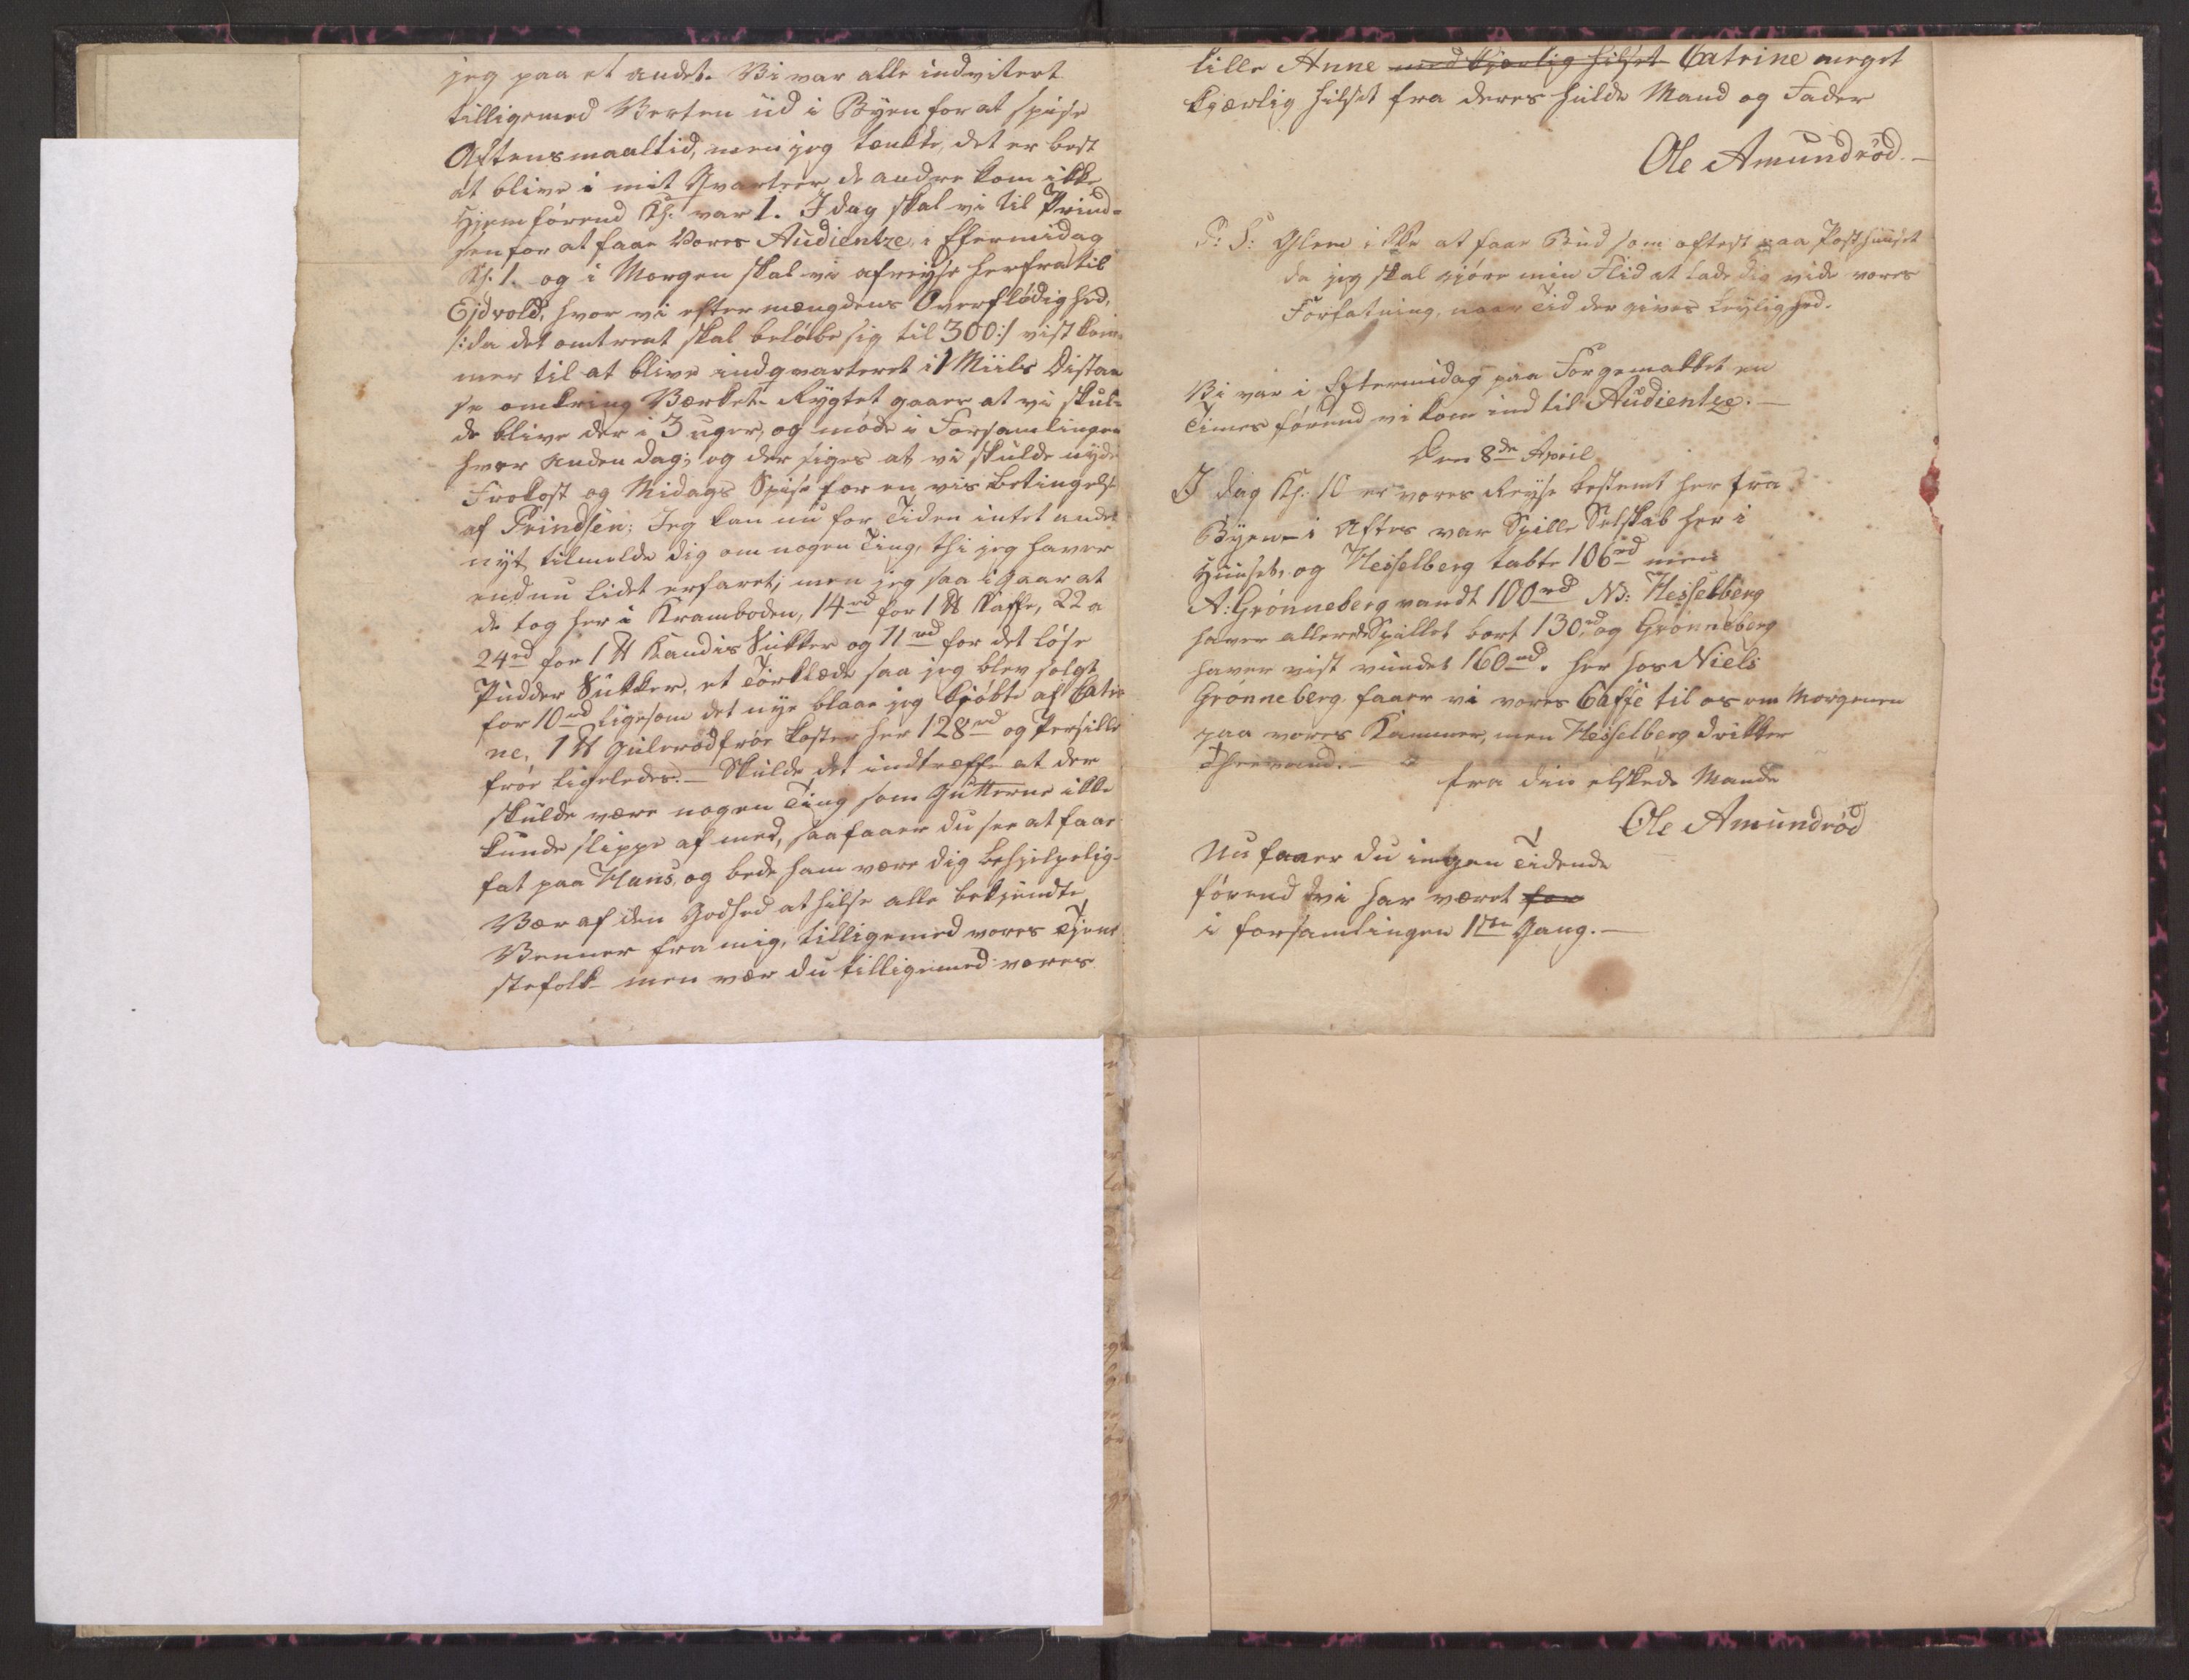 jeg paa et andet. Vi var alle indvitert
tilligemed Verten ud i Byen for at spise
Aftensmaaltid, men jeg tenkte, det er best
at blive i mit Qvarteer, de andre kom ikke
Hjem förend Kl: var 1. I dag skal vi til Prind-
sen for at faae Vores Audientze, i Eftermidag
Kl: 1. og i Morgen skal vi afreyse herfra til
Ejdvold, hvor vi efter mængdens Overflödighed,
/: da det omtrent skal belöbe sig til 300:/ vist kom-
mer til at blive indqvarteret i 1 Miils Distan
se omkring Værket. Rygtet gaaer at vi skul-
de blive der i 3 uger, og möde i Forsamlingen
hver anden dag; og der siges at vi skulde nyde
Frokost og Midags Spise for en vis Betingelse
af Prindsen; Jeg kan nu for Tiden intet andet
nyt tilmelde dig om nogen Ting, thi jeg haver
endnu lidet erfaret; men jeg saa i Gaar at
de tog her i Kramboden, 14 rd for 1 ℔ Kaffe, 22 a
24 rd for 1 ℔ Kandis Sukker og 11 rd for det löse
Pudder Sukker, et Törklæde saa jeg blev solgt
for 10 rd ligesom det nye blaae jeg kjöbte af Catri-
ne, 1 ℔ Gulerodfröe koster her 128 rd og Persille
fröe ligeledes. – Skulde det indtreffe at der
skulde være nogen Ting som Gutterne ikke
kunde slippe af med, saa faaer du see at faae
fat paa Hans, og bede ham være dig behjelpelig.
Vær af den Godhed at hilse alle bekjendte
Venner fra mig, tilligemed vores Tjene
stefolk men vær du tilligemed vores
lille Anne med kjærlig hilset Catrine meget
kjærlig hilset fra deres hulde Mand og Fader
Ole Amundröd. –
P: S: Glem ikke at faae Bud som oftest paa Posthuuset
da jeg skal gjöre min Flid at lade dig vide vores
Forfatning, naar Tid der gives Leylighed.
Vi var i Eftermidag paa Forgemakket en
Times förend vi kom ind til Audientze. –
Den 8de April
I dag Kl: 10 er vores Reyse bestemt her fra
Byen – i Aftes var Spille Selskab her i
Huuset, og Hesselberg tabte 106 rd men
A: Grönneberg vandt 100 rd NB: Hesselberg
haver allerede Spillet bort 130 rd, og Grönneberg
haver vist vundet 160 rd. her hos Niels
Grönneberg faaer vi vores Caffe til os om Morgenen
paa vores Kammer, men Hesselberg drikker
Theevand. –
fra din elskede Mande
Ole Amundröd
Nu faaer du ingen Tidende
förend vi har været for
i forsamlingen 1ste Gang. –